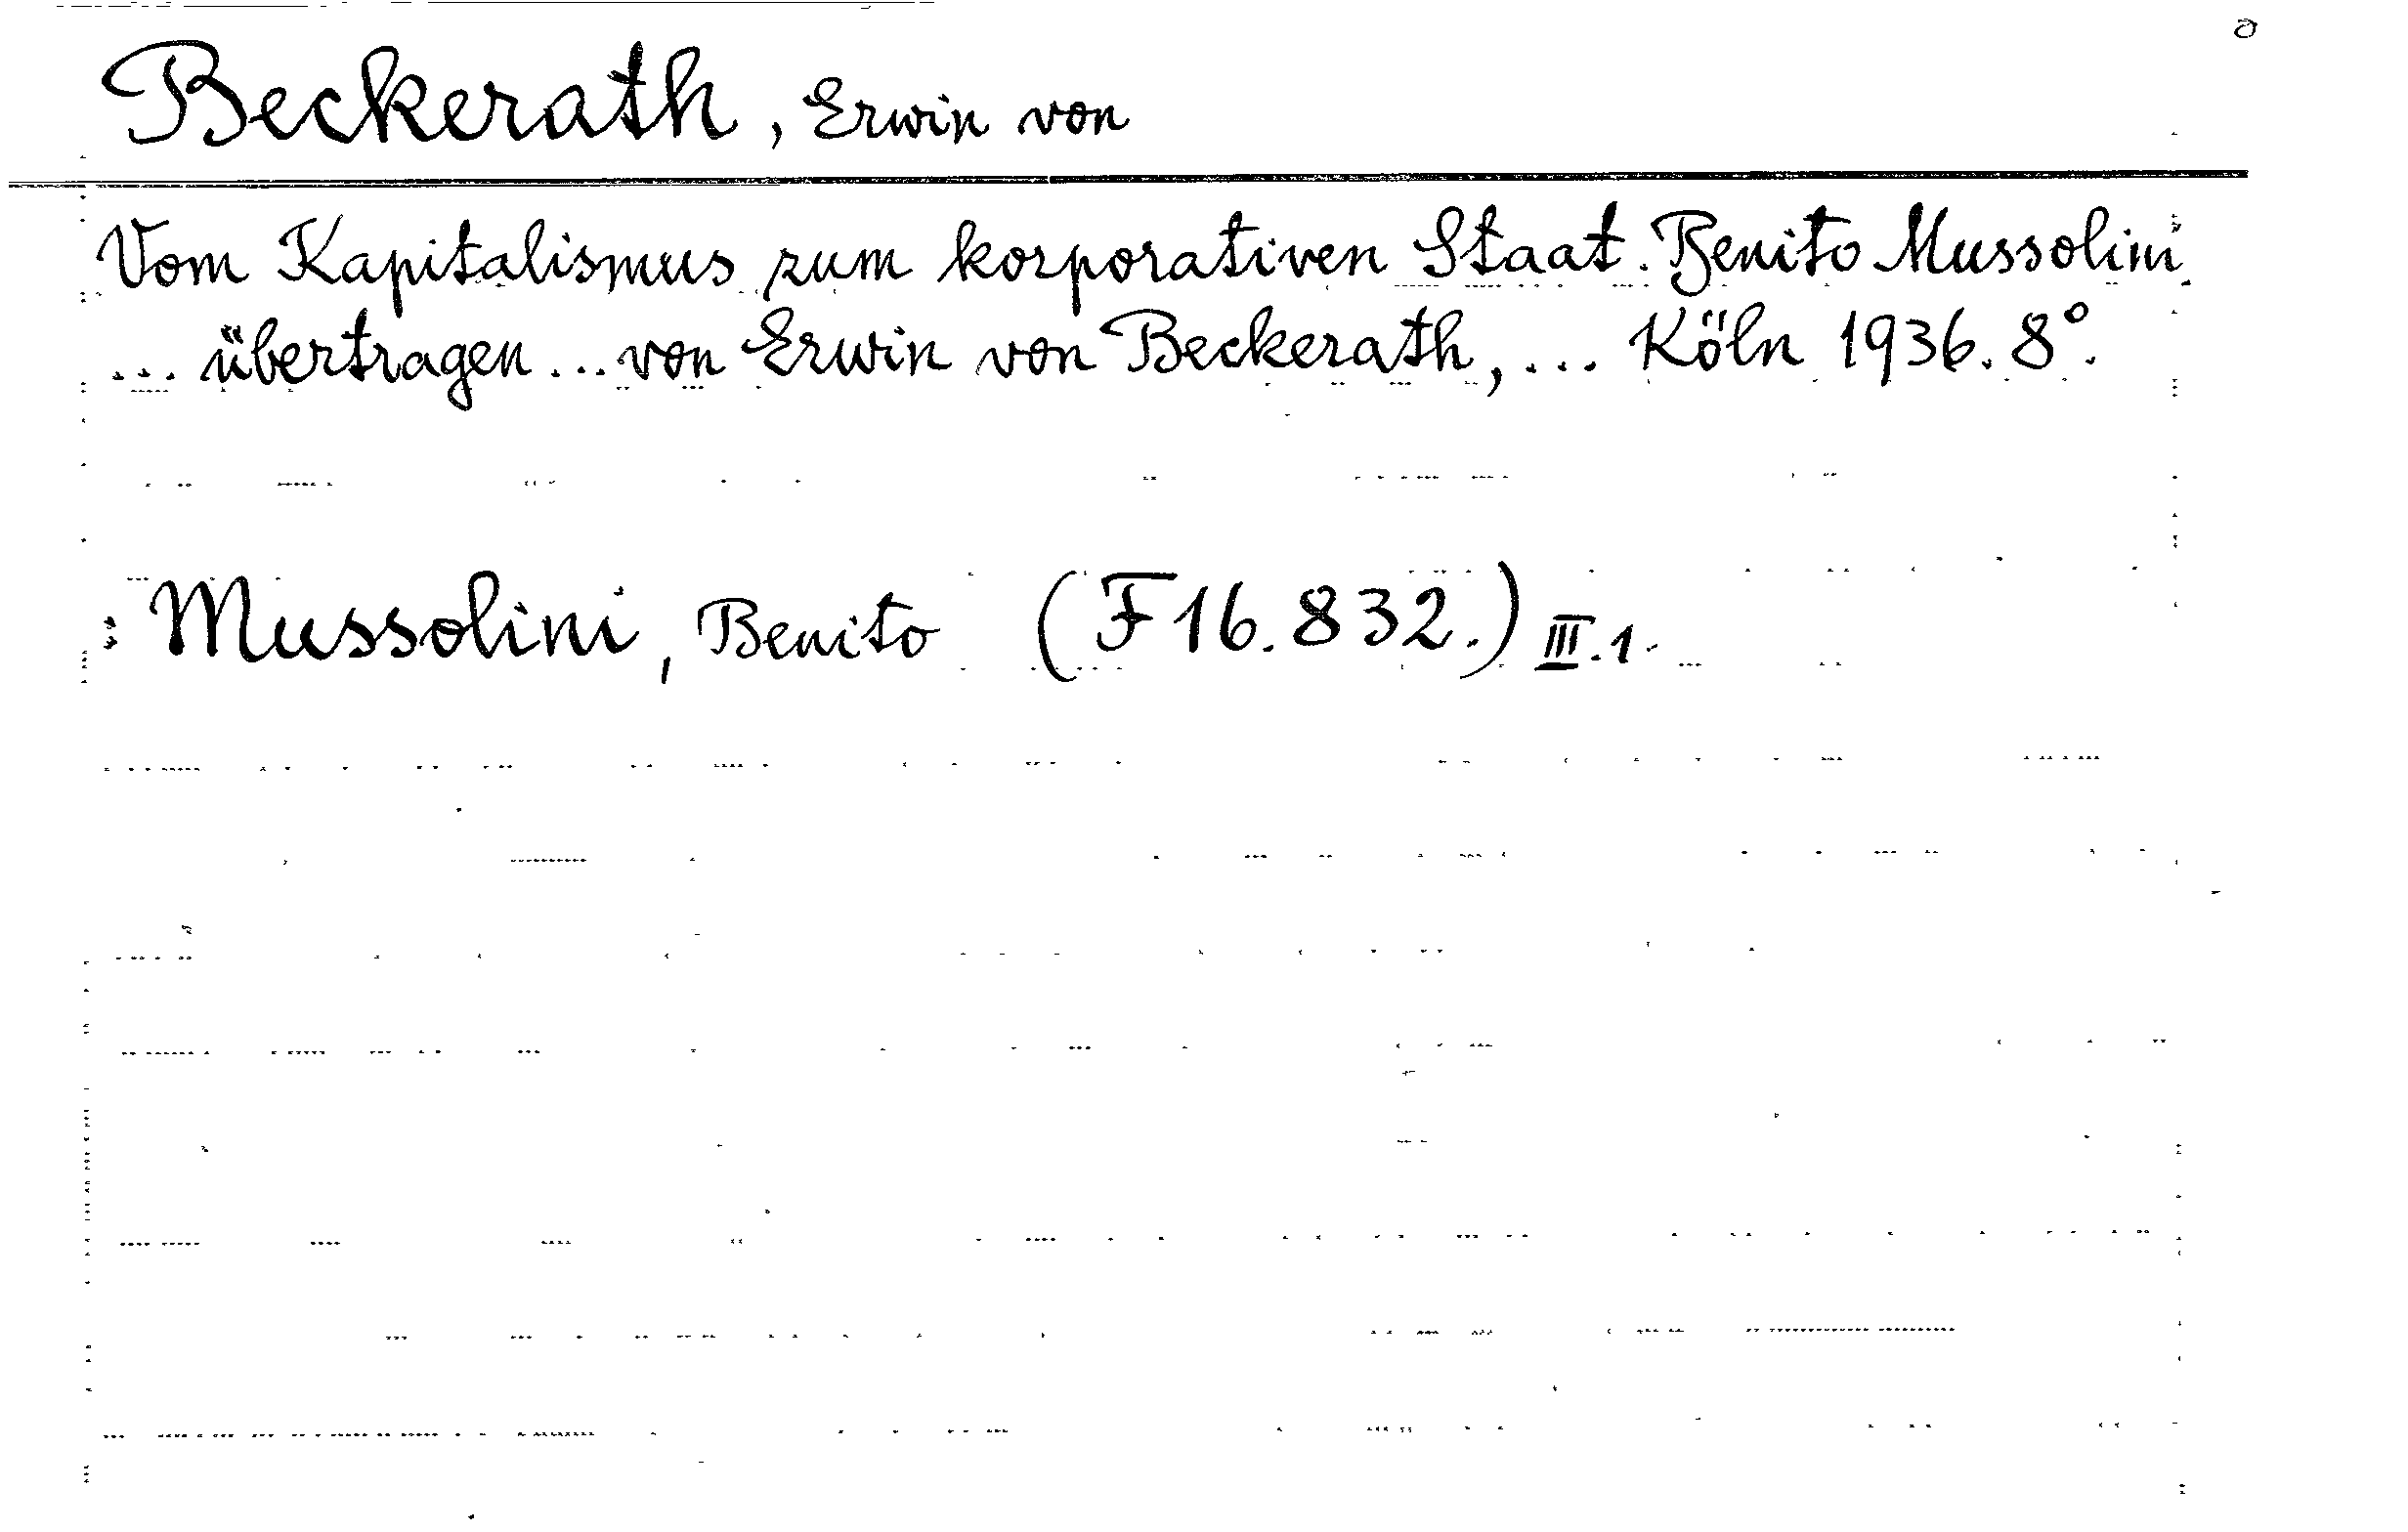 Beckerath, Erwin von
Vom Kapitalismus zum korporativen Staat. Benito Mussolini
... übertragen ... von Erwin von Beckerath, ... Köln 1936. 8°.
: Mussolini, Benito (F 16.832.) III.1.